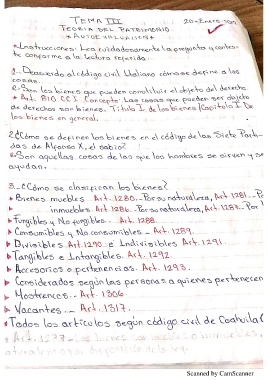 TEMA III 20-Enero-2021
TEORIA DEL PATRIMONIO
* AUTOEVALUACION *
Instrucciones: Lea cuidadosamente la pregunta y contes-
te conforme a la lectura referida.
1. Deacuerdo al código civil Italiano cómo se define a las
cosas.
R. Son los bienes que pueden constituir el objeto del derecho
* Art. 810 CCI Concepto: Las cosas que pueden ser objeto
de derechos son bienes. Titulo I de los bienes (Capitulo I De
los bienes en general.
2. ¿Cómo se definen los bienes en el código de las Siete Parti-
das de Alfonso X, el sabio?
Son aquellas cosas de las que los hombres se sirven y se
ayudan.
3. ¿Cómo se clasifican los bienes?
Bienes muebles Art. 1280.- Por su naturaleza, Art. 1281
inmuebles Art. 1286. Por su naturaleza, Art. 1283. Por
Fungibles y No fungibles. - Art. 1288
Consumibles y No consumibles - Art. 1289.
Divisibles Art. 1290 e Indivisibles Art. 1291.
Tangibles e Intangibles. Art. 1292.
Accesorios o pertenencias. Art. 1293.
Considerados según las personas a quienes pertenecen
Mostrencos. Art. 1306.
Vacantes. Art. 1317.
* Todos los artículos según código civil de Coahuila
Scanned by CamScanner